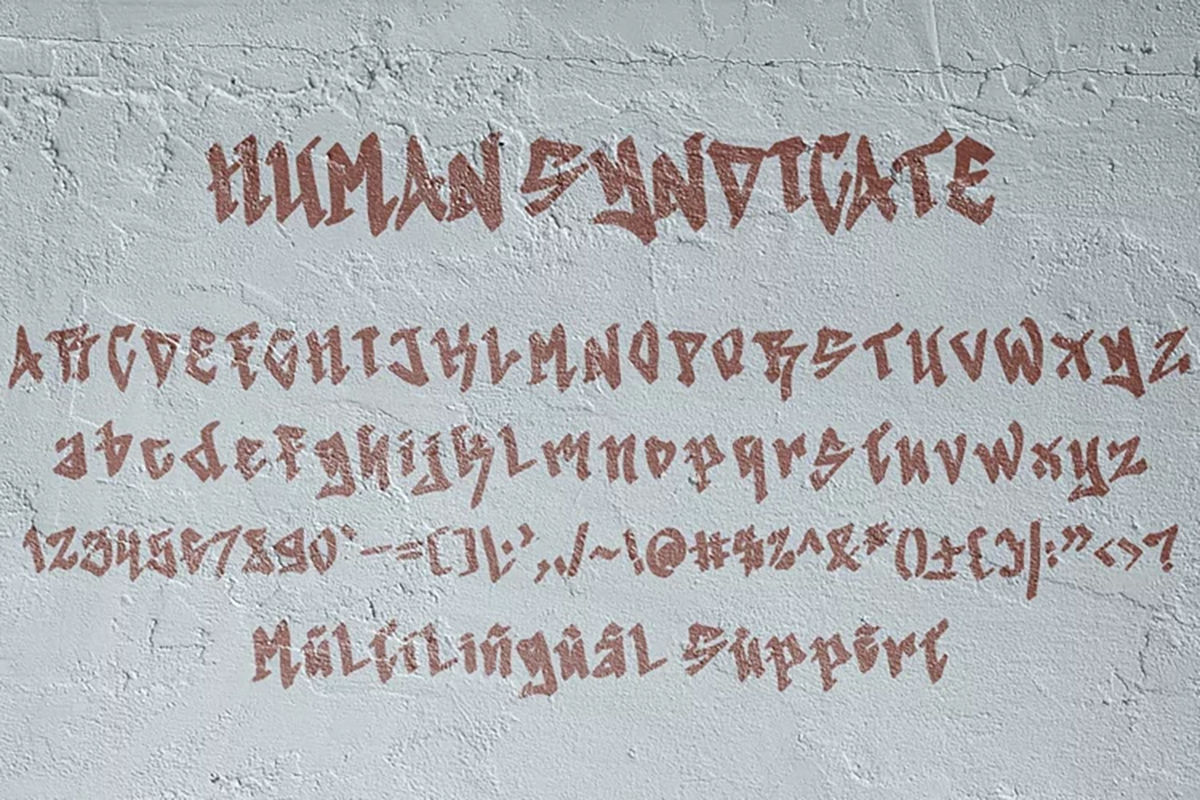 HUMAN SYNDICATE
ABCDEFGHIJKLMNOPQRSTUVWXYZ
abcdefghijklmnopqrstuvwxyz
1234567890`-=[]\;',./~!@#$%^&*()±{}|:"<>?
Mültilíñgûál Süppört